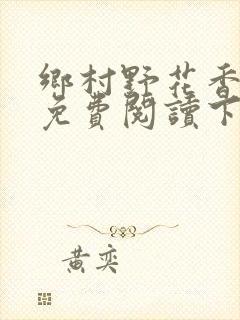 鄉村野花香
免費閱讀下
黃奕